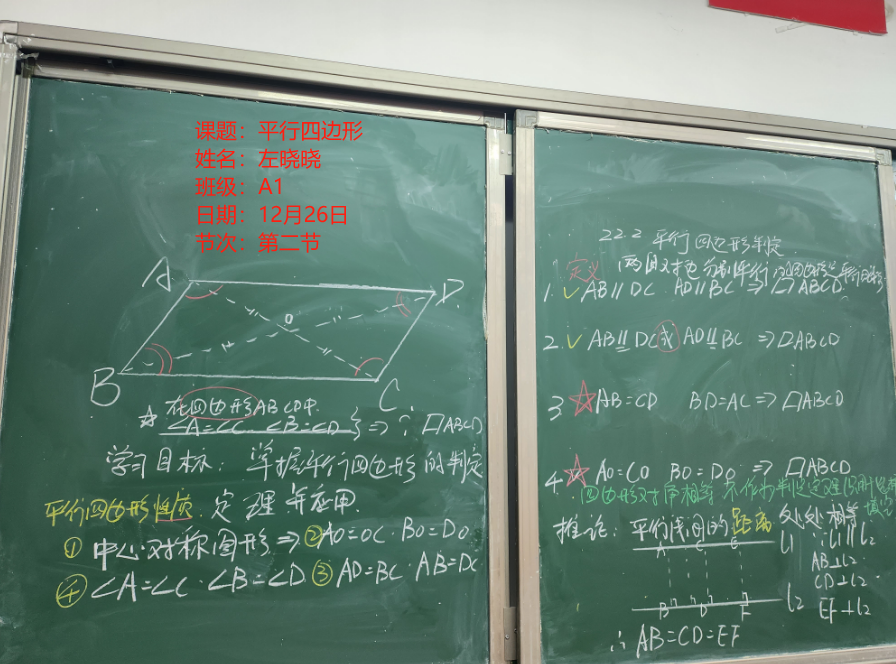 课题：平行四边形
姓名：左晓晓
班级：A1
日期：12月26日
节次：第二节
A
D
O
B
C
☆ 在四边形ABCD中
∠A=∠C ∠B=∠D } ⇒ ? ▱ABCD
学习目标：掌握平行四边形的判定
定理并应用.
平行四边形性质
① 中心对称图形 ⇒ ② AO=OC. BO=DO
④ ∠A=∠C. ∠B=∠D ③ AD=BC. AB=DC
22.2 平行四边形判定
定义 两组对边分别平行的四边形是平行四边形
1. ✓ AB∥DC AD∥BC ⇒ ▱ABCD
2. ✓ AB∥DC或AD∥BC ⇒ ▱ABCD
3 ☆ AB=CD BD=AC ⇒ ▱ABCD
4. ☆ AO=CO BO=DO ⇒ ▱ABCD
四边形对角相等 不作为判定定理
推论：平行线间的距离处处相等
A C E l1 ∵ l1∥l2
AB⊥l2
CD⊥l2
B D F l2 EF⊥l2
∴ AB=CD=EF